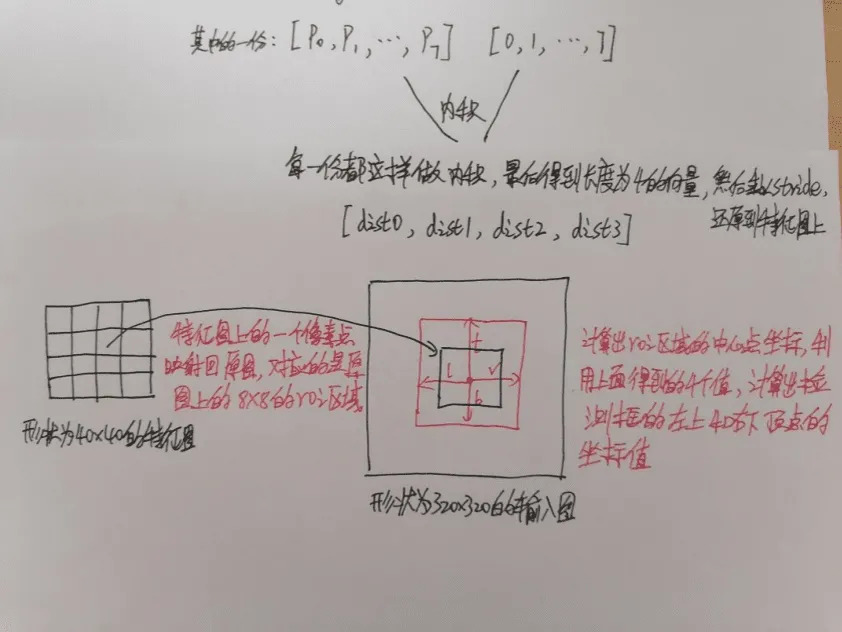 其中的一份: [P0, P1, ···, P7] [0, 1, ···, 7]
内积
每一份都这样做内积, 最后得到长度为4的向量, 然后乘以stride,
还原到特征图上
[dist0, dist1, dist2, dist3]
特征图上的一个像素点
映射回原图, 对应的是原
图上的8x8的roi区域
形状为40x40的特征图
t
l
r
b
计算出roi区域的中心点坐标, 利
用上面得到的4个值, 计算出检
测框的左上和右下顶点的
坐标值
形状为320x320的输入图